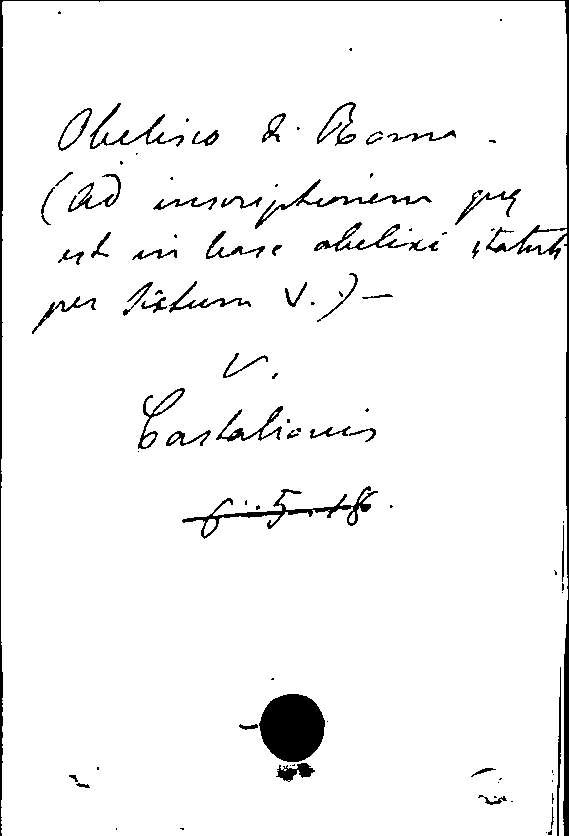 Obelisco di Roma -
(Ad inscriptionem quę
est in base obelixi statuti
per Sixtum V.) -
V.
Castalionis
6..5.18.